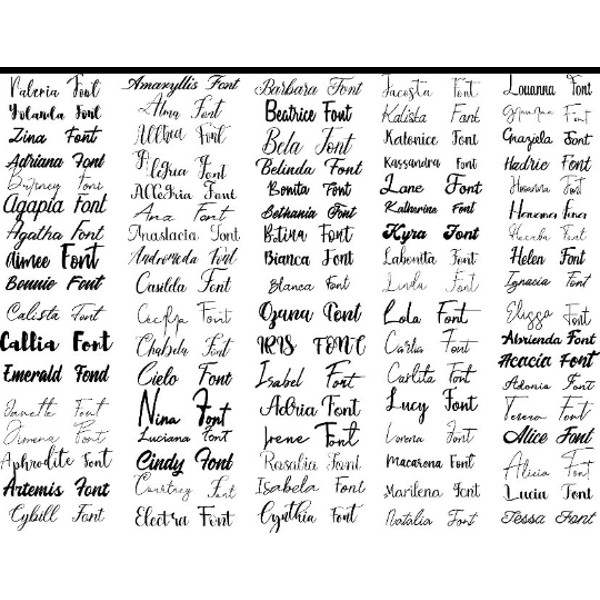 Valeria Font
Yolanda Font
Zina Font
Adriana Font
Britney Font
Agapia Font
Agatha Font
Aimee Font
Bonnie Font
Calista Font
Callia Font
Emerald Fond
Janette Font
Jimena Font
Aphrodite Font
Artemis Font
Cybill Font
Amaryllis Font
Alma Font
Font
Alethia Font
Allethia Font
Ana Font
Anastacia Font
Andromeda Font
Casilda Font
Cecilia Font
Chabela Font
Cielo Font
Nina Font
Luciana Font
Cindy Font
Courtney Font
Electra Font
Barbara Font
Beatrice Font
Bela Font
Belinda Font
Bonita Font
Bethania Font
Betina Font
Bianca Font
Blanca Font
Ozana Font
IRIS FONT
Isabel Font
Adria Font
Irene Font
Rosalia Font
Isabela Font
Cynthia Font
Jacosta Font
Kalista Font
Katonice Font
Kassandra Font
Lane Font
Katherine Font
Kyra Font
Labonita Font
Linda Font
Lola Font
Carla Font
Carlita Font
Lucy Font
Lorena Font
Macarona Font
Marilena Font
Natalia Font
Louanna Font
Font
Graziela Font
Hadric Font
Font
Font
Font
Helen Font
Ignacia Font
Elissa Font
Abrienda Font
Acacia Font
Adonia Font
Teresa Font
Alice Font
Alicia Font
Lucia Font
Tessa Font